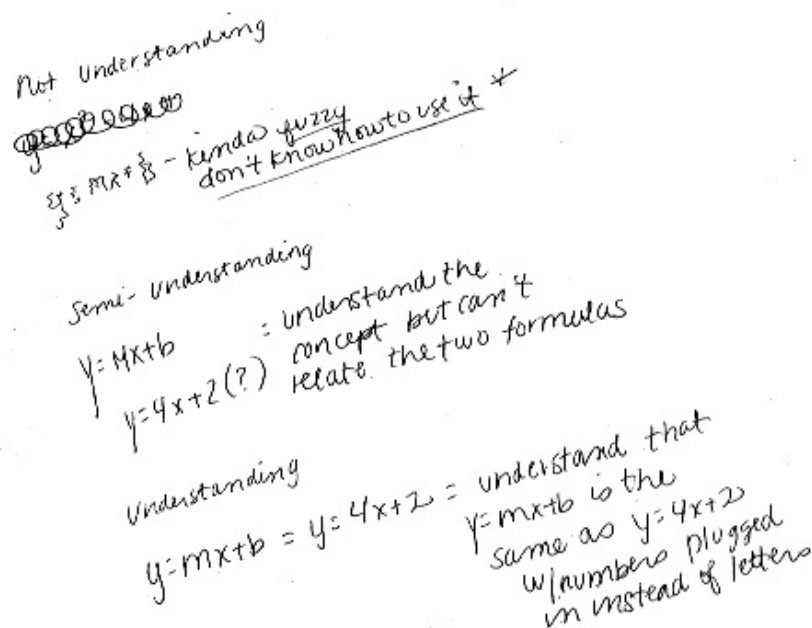 Not Understanding
y = mx + b - kinda fuzzy
don't know how to use it *
Semi-Understanding
y=mx+b = understand the
concept but can't
y=4x+2(?) relate the two formulas
Understanding
y=mx+b = y=4x+2 = understand that
y=mx+b is the
same as y=4x+2
w/numbers plugged
in instead of letters